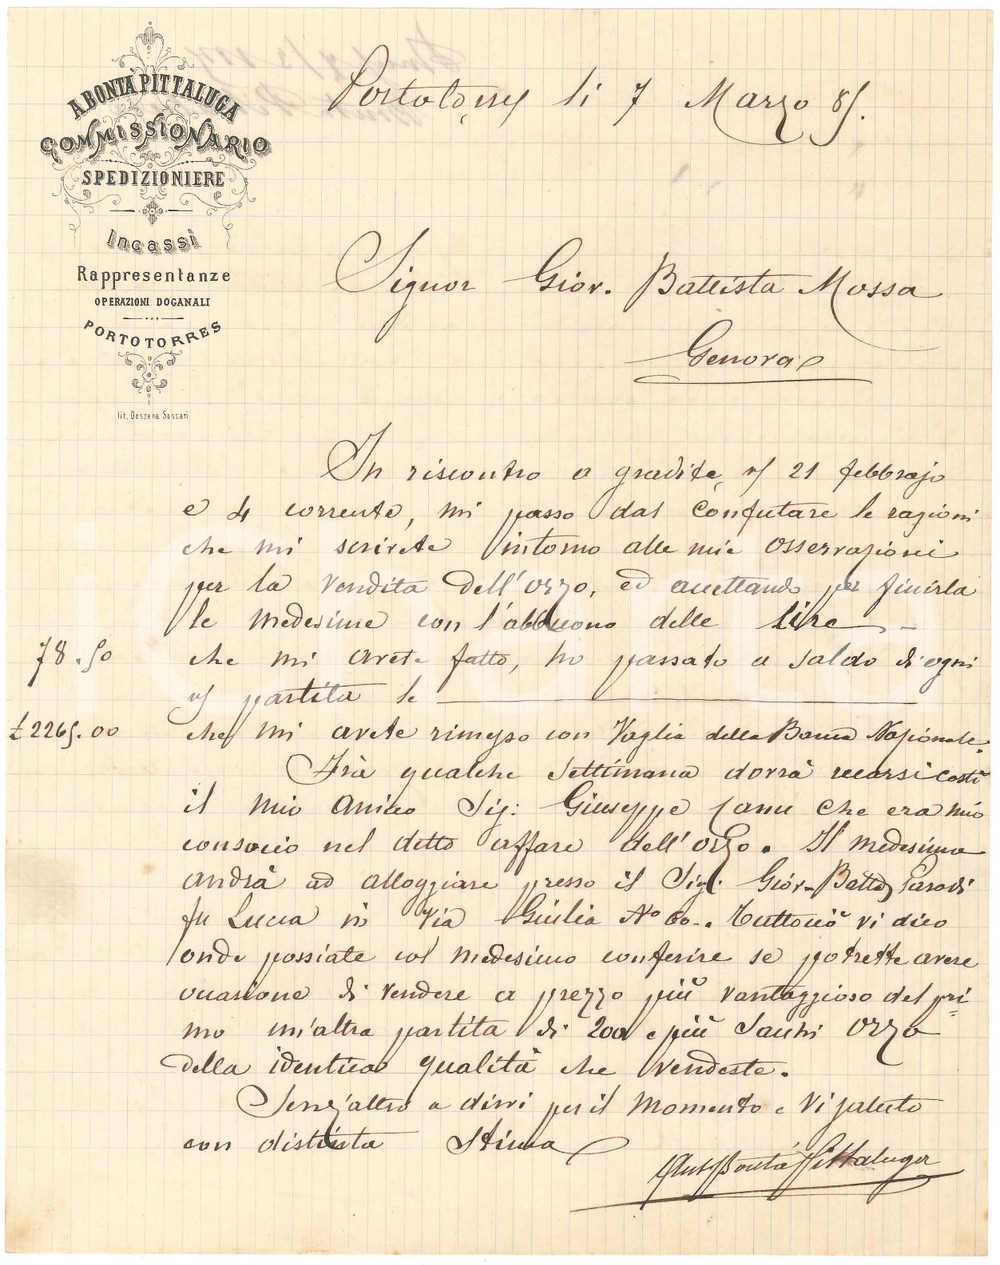 A. BONTÀ PITTALUGA
COMMISSIONARIO
SPEDIZIONIERE
Incassi
Rappresentanze
OPERAZIONI DOGANALI
PORTOTORRES
lit. Dessena Sassari
Portotorres li 7 Marzo 85.
Signor Giov. Battista Mossa
Genova
In riscontro a gradite v/ 21 febbrajo
e 4 corrente, mi passo dal confutare le ragioni
che mi scrivete intorno alle mie osservazioni
per la vendita dell'orzo, ed accettando per finirla
le medesime con l'abbuono delle lire
78.50 che mi avete fatto, ho passato a saldo di ogni
v/ partita le
£ 2265.00 che mi avete rimesso con Vaglia della Banca Nazionale.
Frà qualche settimana dovrà recarsi costì
il mio amico Sig: Giuseppe Canu che era mio
consocio nel detto affare dell'orzo. Il medesimo
andrà ad alloggiare presso il Sig. Giov. Batta Parodi
fu Luca in Via Giulia No 60. Tuttociò vi dico
onde possiate col medesimo conferire se potreste avere
occasione di vendere a prezzo più vantaggioso del pri=
mo un'altra partita di 200 e più sacchi orzo
della identica qualità che vendeste.
Senz'altro a dirvi per il momento e vi saluto
con distinta stima
Ant Bontà Pittaluga